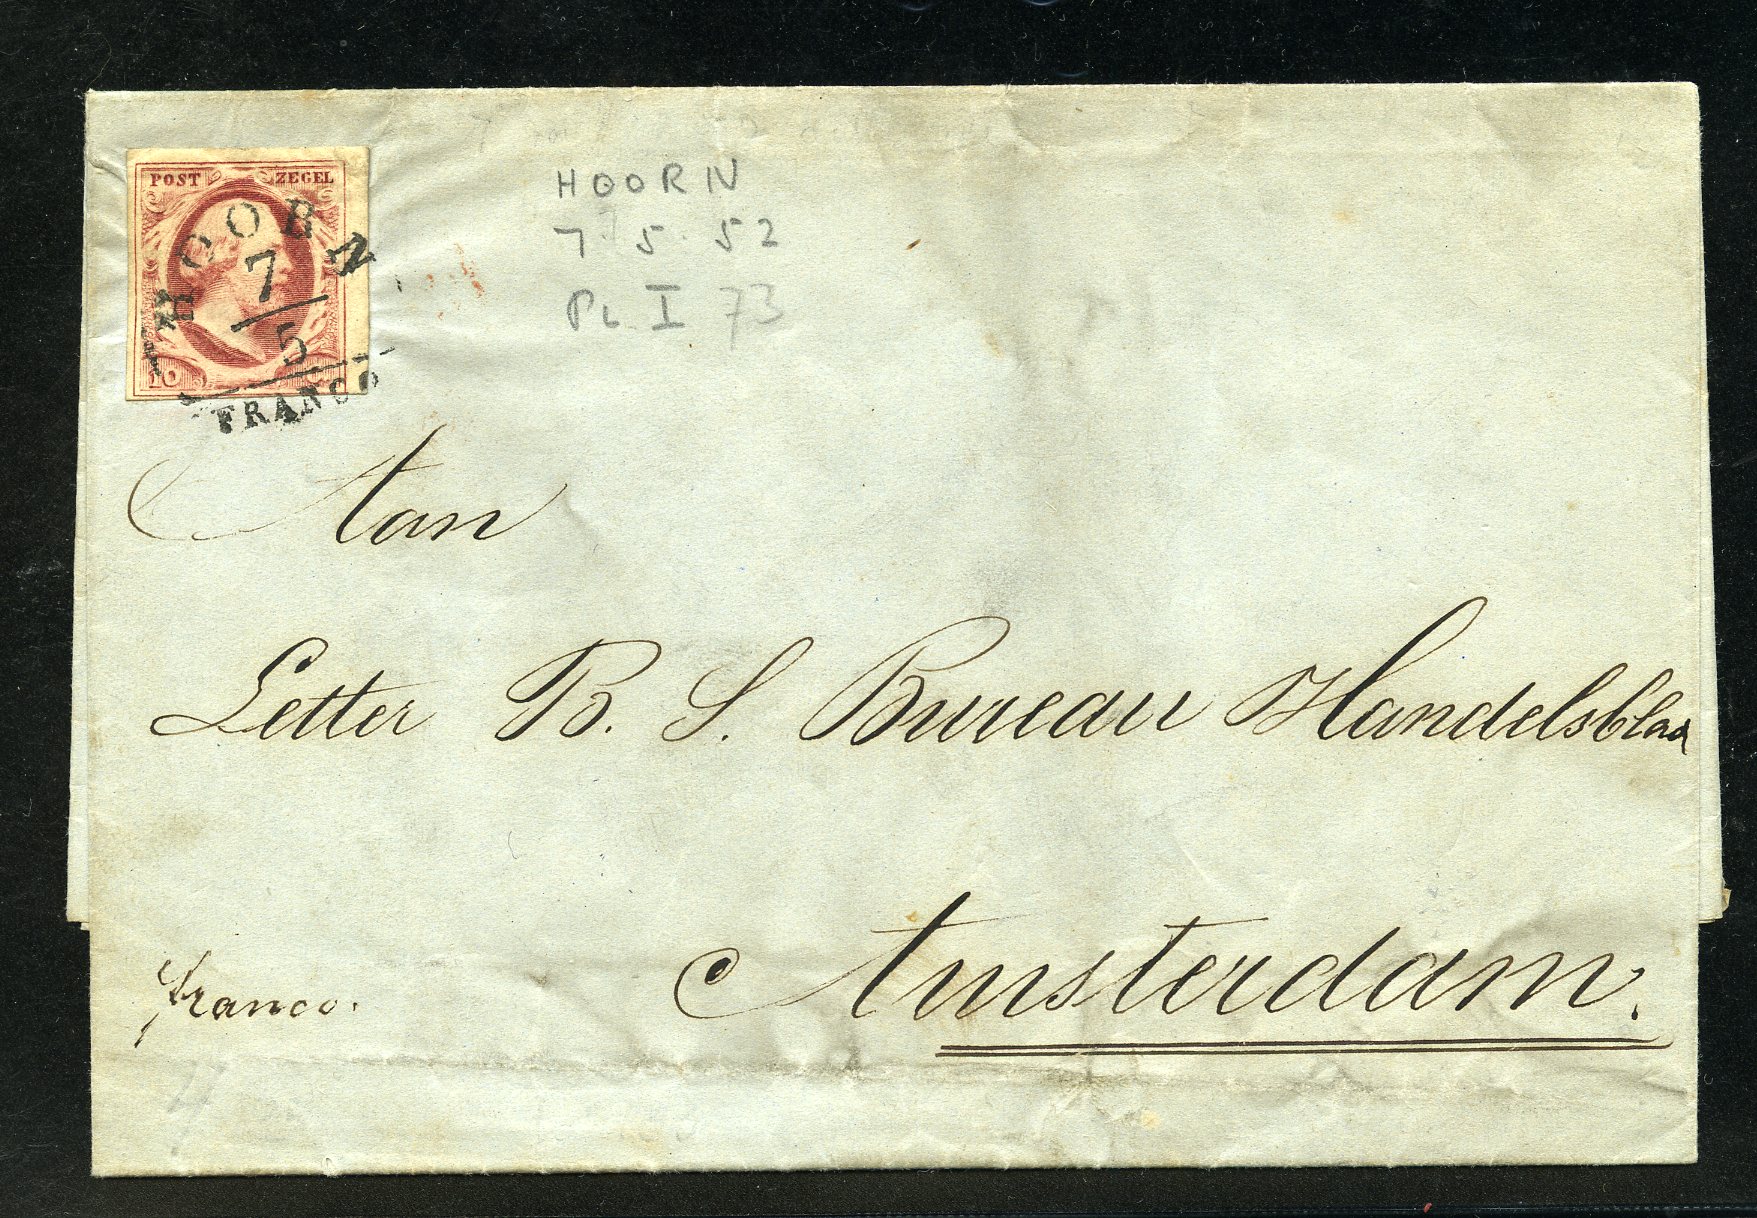 POST ZEGEL
HOORN
7
5
FRANCO
10
HOORN
7. 5. 52
PL I 73
Aan
Letter B. S. Bureau Handelsblaa
franco.
Amsterdam.